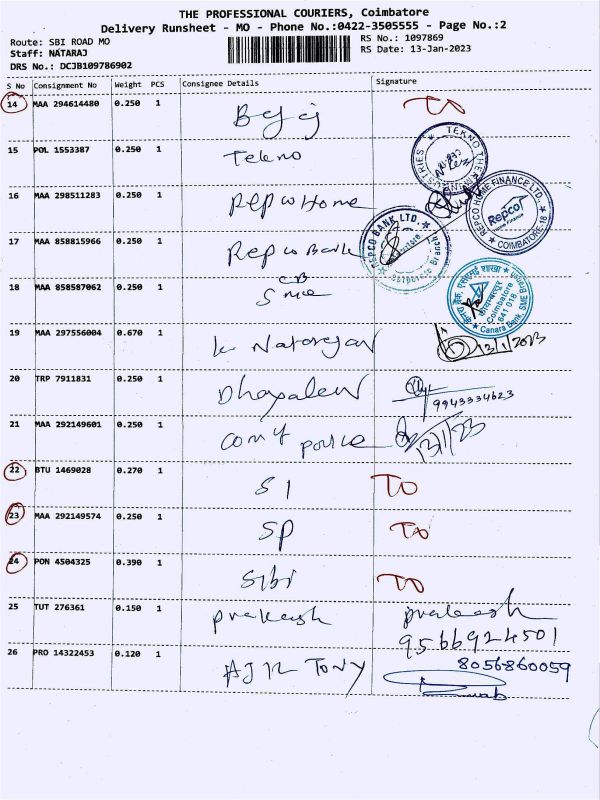 THE PROFESSIONAL COURIERS, Coimbatore
Delivery Runsheet - MO - Phone No.:0422-3505555 - Page No.:2
Route: SBI ROAD MO RS No.: 1097869
Staff: NATARAJ RS Date: 13-Jan-2023
DRS No.: DCJB109786902
S No Consignment No Weight PCS Consignee Details Signature
14 MAA 294614480 0.250 1 TO
15 POL 1553387 0.250 1 Tekno
TEKNO THE
16 MAA 298511283 0.250 1 Repco Home
REPCO HOME FINANCE LTD.
Repco
COIMBATORE-18
17 MAA 858815966 0.250 1 Repco Bank
REPCO BANK LTD.
Corporate Branch
18 MAA 858587062 0.250 1 CB SME
Coimbatore
641 018
Canara Bank, SME Branch
19 MAA 297556004 0.670 1 K Natarajan 13/1/2023
20 TRP 7911831 0.250 1 9943334623
21 MAA 292149601 0.250 1 police 13/1/23
22 BTU 1469028 0.270 1 SI TO
23 MAA 292149574 0.250 1 SP TO
24 PON 4504325 0.390 1 Sibi TO
25 TUT 276361 0.150 1 prakash prakash
9566924501
26 PRO 14322453 0.120 1 TONY 8056860059